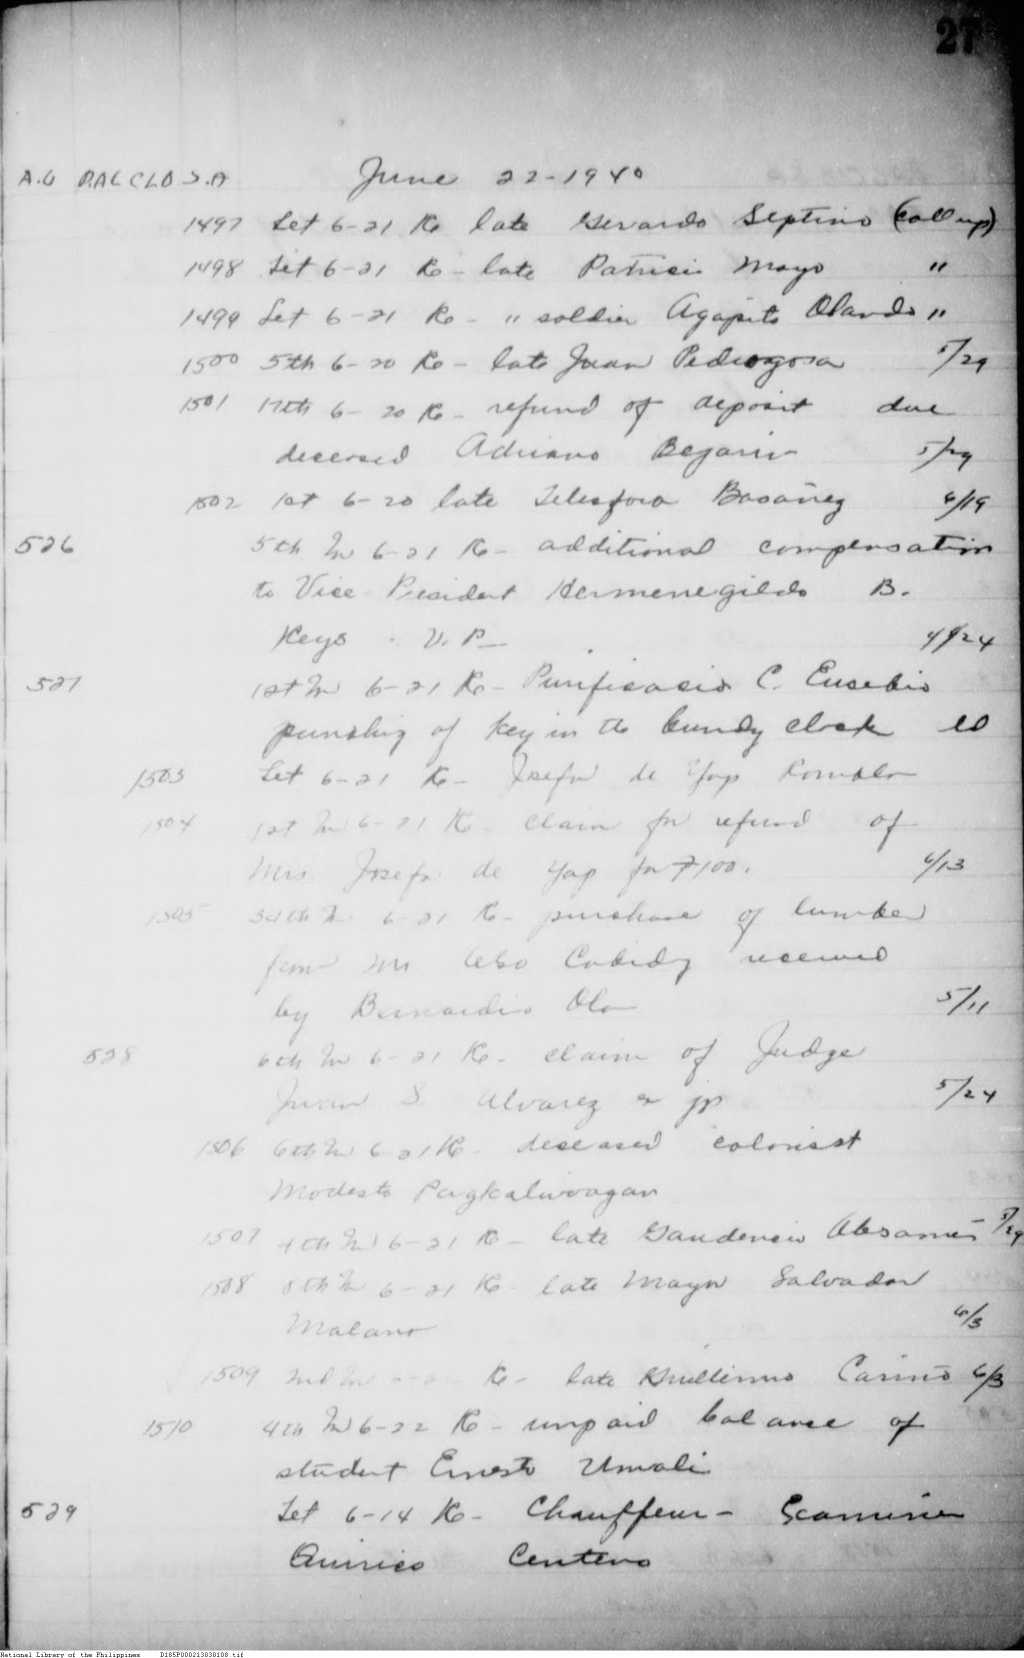 27
A.G P.A.C CLD S.A June 22-1940
1497 Let 6-21 Re late Gerardo Septimo (Call up)
1498 Let 6-21 Re - late Patricio Mayo "
1499 Let 6-21 Re - " soldier Agapito Olando "
1500 5th 6-20 Re - late Juan Pedrogosa 5/29
1501 17th 6-20 Re - refund of deposit due
deceased Adriano Begarin 5/29
1502 1st 6-20 late Telesfora Basañez 6/19
526 5th In 6-21 Re - additional compensation
to Vice President Hermenegildo B.
Keyo V.P. 4/24
527 1st In 6-21 Re - Purificacio C. Eusebio
punching of key in the bundy clock
1503 Let 6-21 Re - Josefa de Yap Romulo
1504 1st In 6-21 Re - claim for refund of
Mrs. Josefa de Yap for ₱100. 6/13
1505 34th In 6-21 Re - purchase of lumber
from Mr received
by Bernardino Ola 5/11
528 6th In 6-21 Re - claim of Judge
Juan S. Alvarez as jp 5/24
1506 6th In 6-21 Re - deceased colonist
Modesto Pagkaliwagan
1507 4th In 6-21 Re - late Gaudencio Absames 5/29
1508 8th In 6-21 Re - late Mayor Salvador
Malano 6/3
1509 2nd In Re - late Guillermo Carino 6/3
1510 4th In 6-22 Re - unpaid balance of
student Ernesto Umali
529 Let 6-14 Re - Chauffeur - Examiner
Quirico Centeno
National Library of the Philippines D185P000213838108.tif